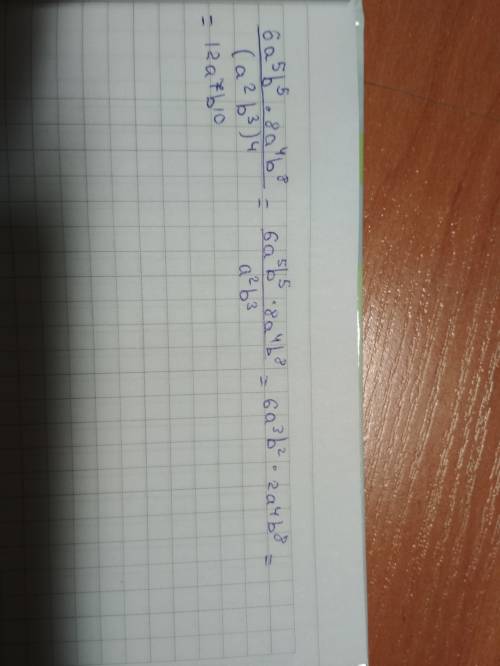 6a⁵b⁵ · 8a⁴b⁸ / (a²b³)4 = 6a⁵b⁵ · 8a⁴b⁸ / a²b³ = 6a³b² · 2a⁴b⁸ =
= 12a⁷b¹⁰